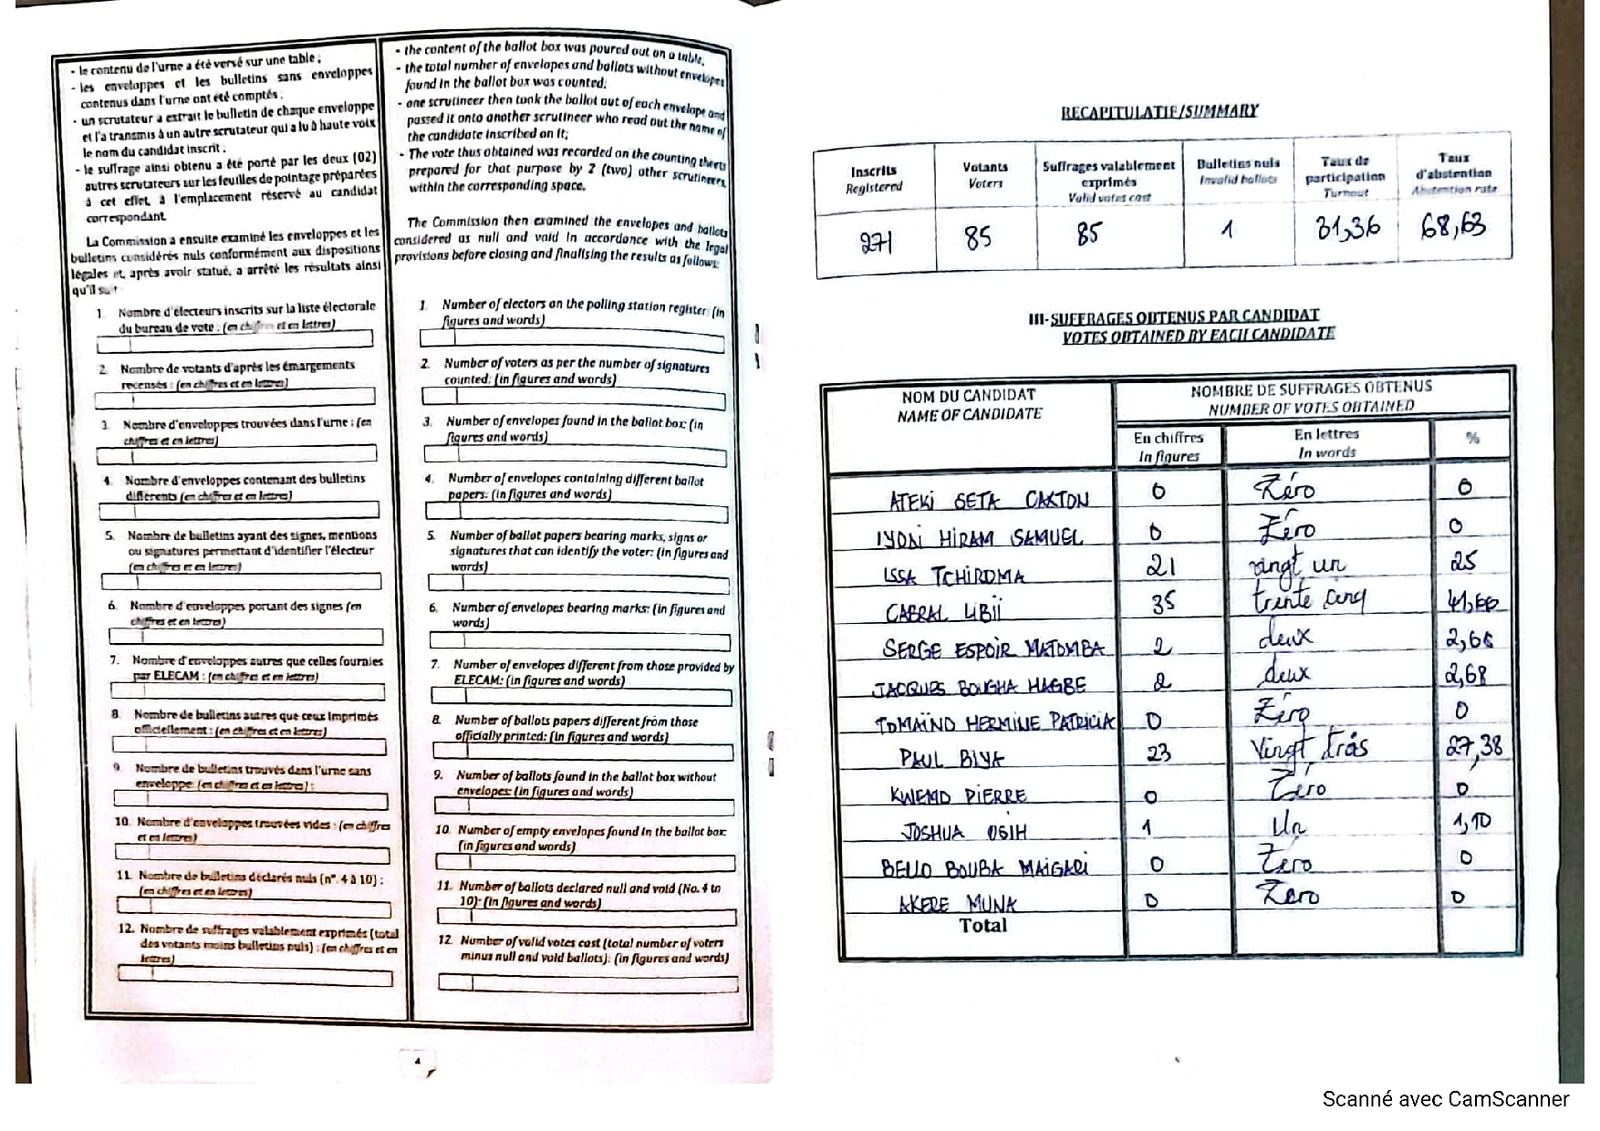 - le contenu de l'urne a été versé sur une table ;
- les enveloppes et les bulletins sans enveloppes
contenus dans l'urne ont été comptés ;
- un scrutateur a extrait le bulletin de chaque enveloppe
et l'a transmis à un autre scrutateur qui a lu à haute voix
le nom du candidat inscrit ;
- le suffrage ainsi obtenu a été porté par les deux (02)
autres scrutateurs sur les feuilles de pointage préparées
à cet effet, à l'emplacement réservé au candidat
correspondant.
La Commission a ensuite examiné les enveloppes et les
bulletins considérés nuls conformément aux dispositions
légales et, après avoir statué, a arrêté les résultats ainsi
qu'il suit
1. Nombre d'électeurs inscrits sur la liste électorale
du bureau de vote : (en chiffres et en lettres)
2. Nombre de votants d'après les émargements
recensés : (en chiffres et en lettres)
3. Nombre d'enveloppes trouvées dans l'urne : (en
chiffres et en lettres)
4. Nombre d'enveloppes contenant des bulletins
différents (en chiffres et en lettres)
5. Nombre de bulletins ayant des signes, mentions
ou signatures permettant d'identifier l'électeur
(en chiffres et en lettres)
6. Nombre d'enveloppes portant des signes (en
chiffres et en lettres)
7. Nombre d'enveloppes autres que celles fournies
par ELECAM : (en chiffres et en lettres)
8. Nombre de bulletins autres que ceux imprimés
officiellement : (en chiffres et en lettres)
9. Nombre de bulletins trouvés dans l'urne sans
enveloppe: (en chiffres et en lettres) :
10. Nombre d'enveloppes trouvées vides : (en chiffres
et en lettres)
11. Nombre de bulletins déclarés nuls (n°. 4 à 10) :
(en chiffres et en lettres)
12. Nombre de suffrages valablement exprimés (total
des votants moins bulletins nuls) : (en chiffres et en
lettres)
- the content of the ballot box was poured out on a table,
- the total number of envelopes and ballots without envelopes
found in the ballot box was counted;
- one scrutineer then took the ballot out of each envelope and
passed it onto another scrutineer who read out the name of
the candidate inscribed on it;
- The vote thus obtained was recorded on the counting sheets
prepared for that purpose by 2 (two) other scrutineers,
within the corresponding space.
The Commission then examined the envelopes and ballots
considered as null and void in accordance with the legal
provisions before closing and finalising the results as follows:
1. Number of electors on the polling station register: (in
figures and words)
2. Number of voters as per the number of signatures
counted: (in figures and words)
3. Number of envelopes found in the ballot box: (in
figures and words)
4. Number of envelopes containing different ballot
papers: (in figures and words)
5. Number of ballot papers bearing marks, signs or
signatures that can identify the voter: (in figures and
words)
6. Number of envelopes bearing marks: (in figures and
words)
7. Number of envelopes different from those provided by
ELECAM: (in figures and words)
8. Number of ballots papers different from those
officially printed: (in figures and words)
9. Number of ballots found in the ballot box without
envelopes: (in figures and words)
10. Number of empty envelopes found in the ballot box:
(in figures and words)
11. Number of ballots declared null and void (No. 4 to
10): (in figures and words)
12. Number of valid votes cast (total number of voters
minus null and void ballots): (in figures and words)
4
RECAPITULATIF/SUMMARY
Inscrits Registered Votants Voters Suffrages valablement exprimés Valid votes cast Bulletins nuls Invalid ballots Taux de participation Turnout Taux d'abstention Abstention rate
271 85 85 1 31,36 68,63
III- SUFFRAGES OBTENUS PAR CANDIDAT
VOTES OBTAINED BY EACH CANDIDATE
NOM DU CANDIDAT NOMBRE DE SUFFRAGES OBTENUS
NAME OF CANDIDATE NUMBER OF VOTES OBTAINED
En chiffres En lettres %
In figures In words
ATEKI SETA CAXTON 0 Zéro 0
IYODI HIRAM SAMUEL 0 Zéro 0
ISSA TCHIROMA 21 vingt un 25
CABRAL LIBII 35 trente cinq 41,66
SERGE ESPOIR MATOMBA 2 deux 2,68
JACQUES BOUGHA HAGBE 2 deux 2,68
TOMAÏNO HERMINE PATRICIA 0 Zéro 0
PAUL BIYA 23 Vingt trois 27,38
KWEMO PIERRE 0 Zéro 0
JOSHUA OSIH 1 Un 1,10
BELLO BOUBA MAIGARI 0 Zéro 0
AKERE MUNA 0 Zero 0
Total
Scanné avec CamScanner